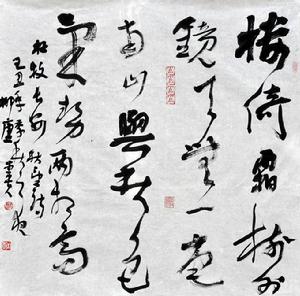 楼倚霜树外
镜天无一毫
南山与秋色
气势两相高
杜牧长安秋望诗